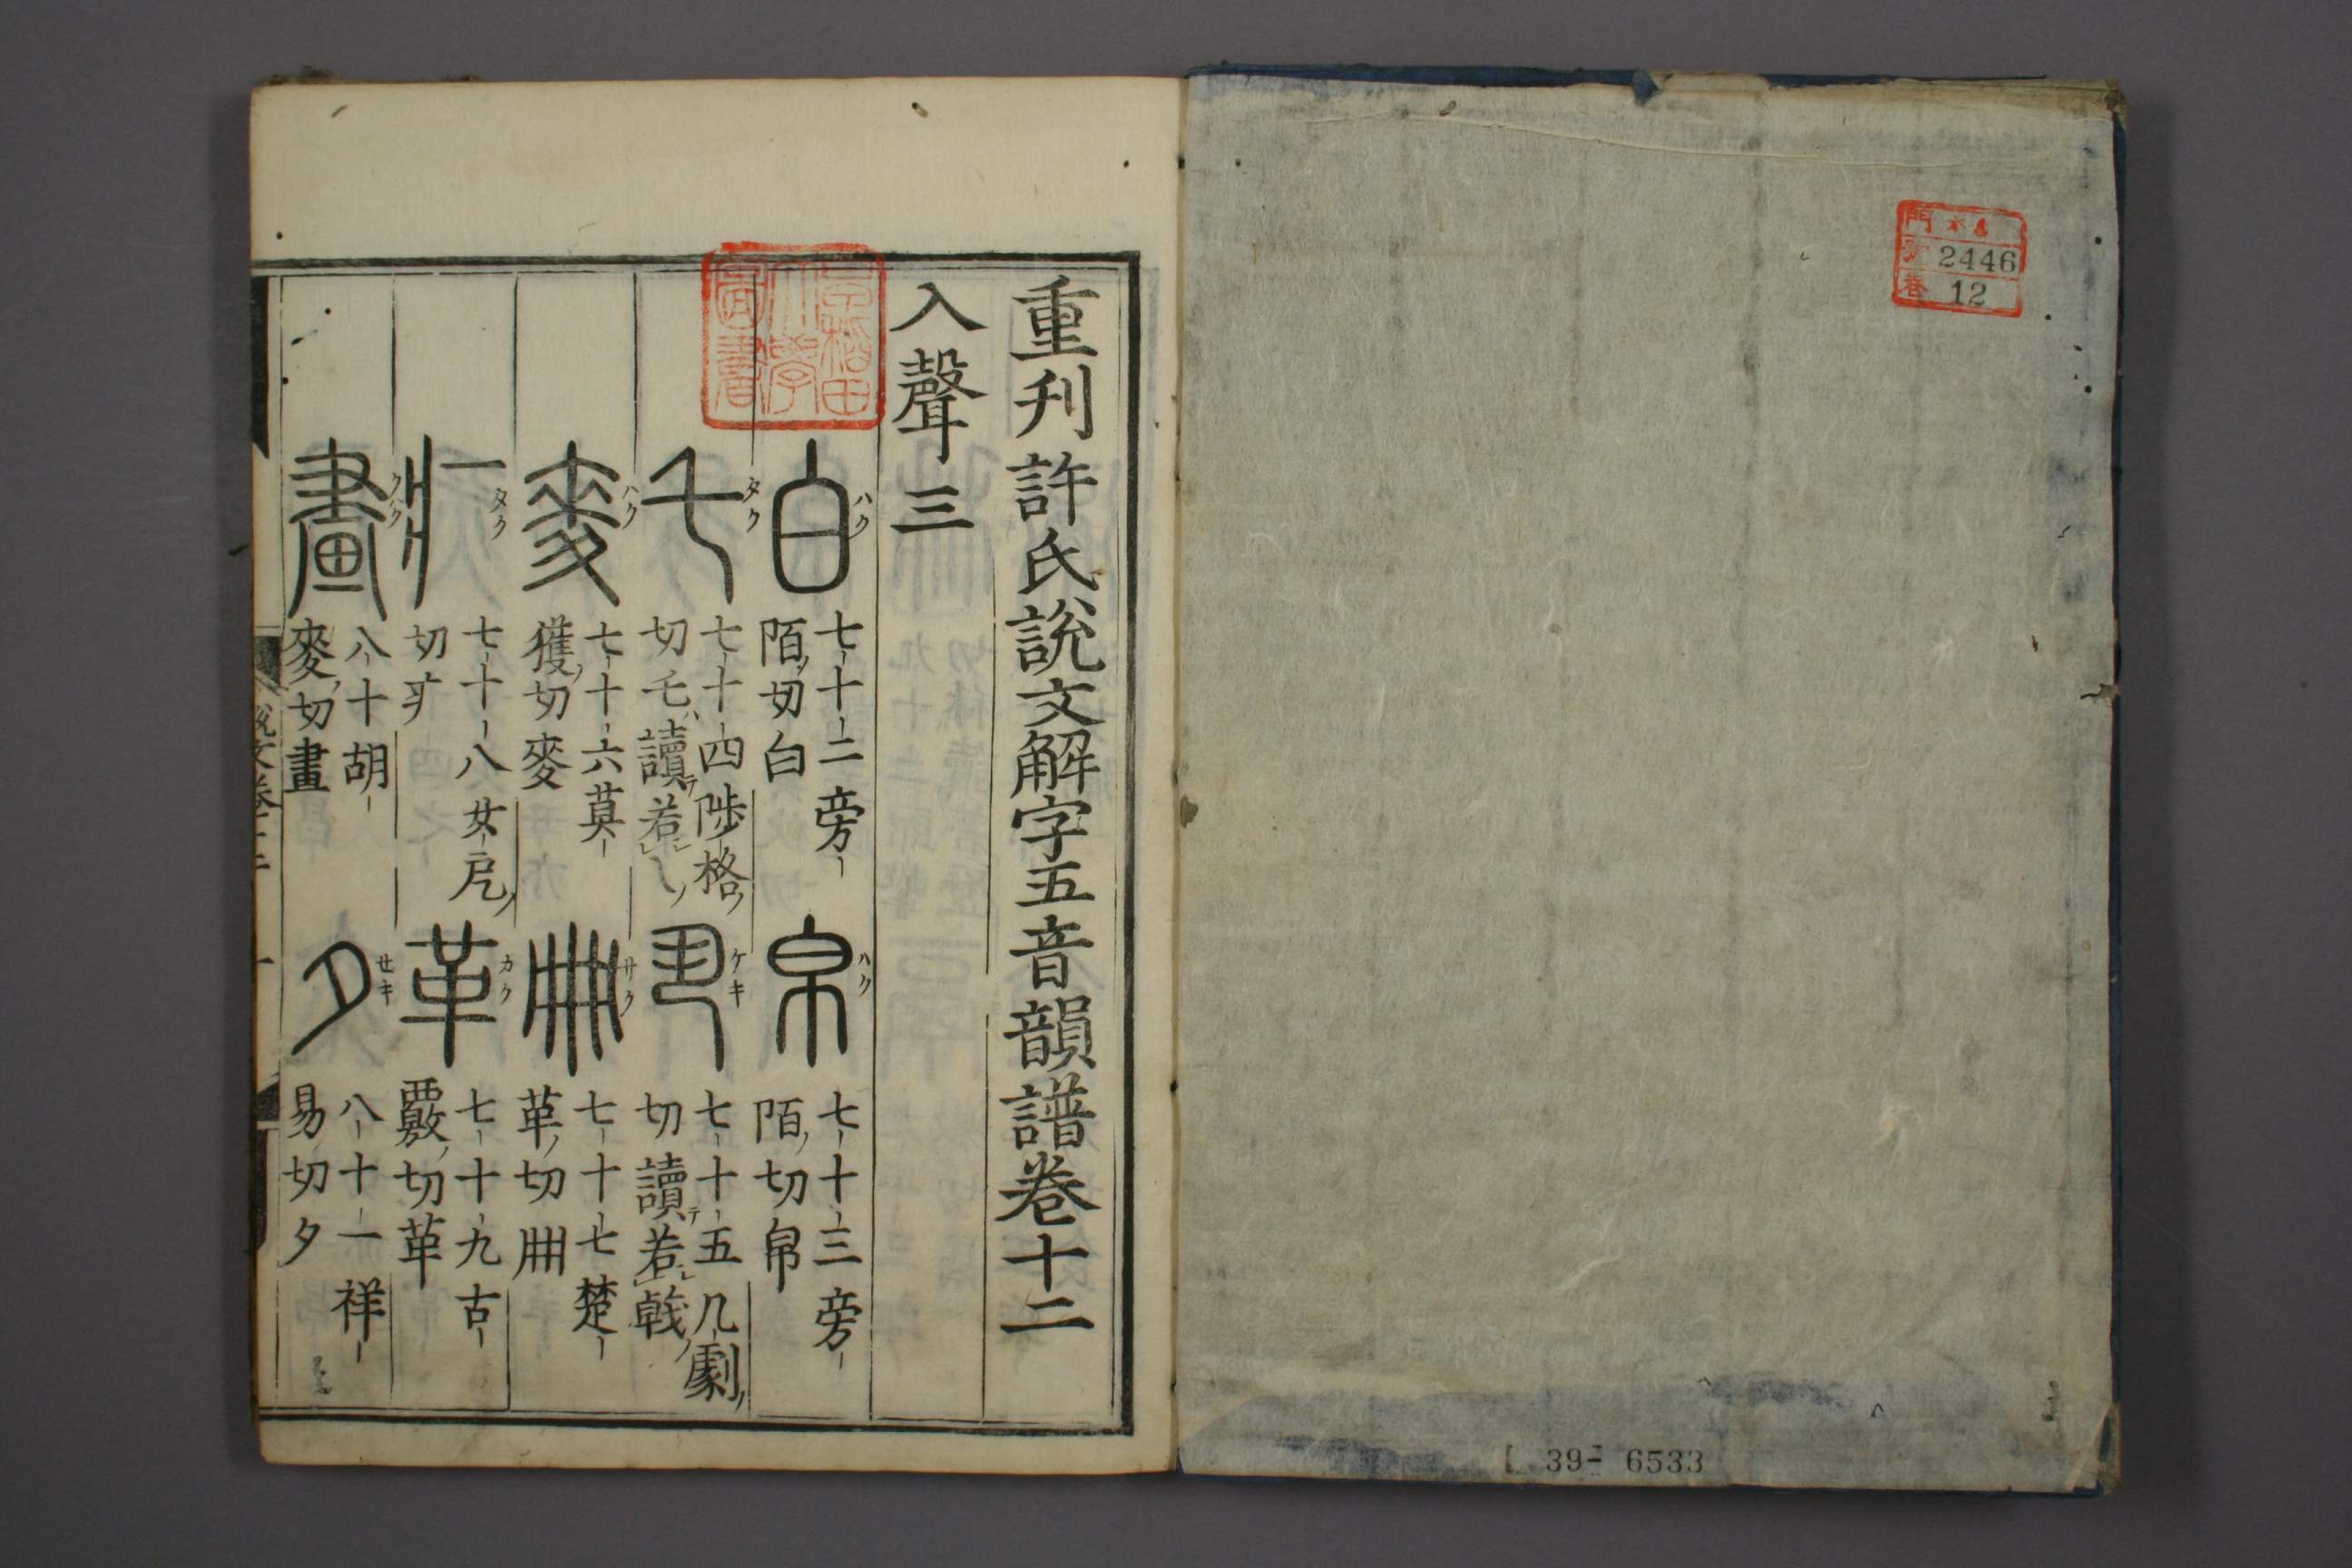 門 ホ4
號 2446
巻 12
39- 6533
重刋許氏說文解字五音韻譜卷十二
入聲三
早稻田大學圖書
白 ハク 七十二旁陌切白
帛 ハク 七十三旁陌切帛
乇 タク 七十四陟格切乇讀若
丮 ケキ 七十五几劇切讀若戟
麥 ハク 七十六莫獲切麥
冊 サク 七十七楚革切冊
疒 タク 七十八女戹切疒
革 カク 七十九古覈切革
畫 クハク 八十胡麥切畫
夕 セキ 八十一祥易切夕
說文卷十二 一